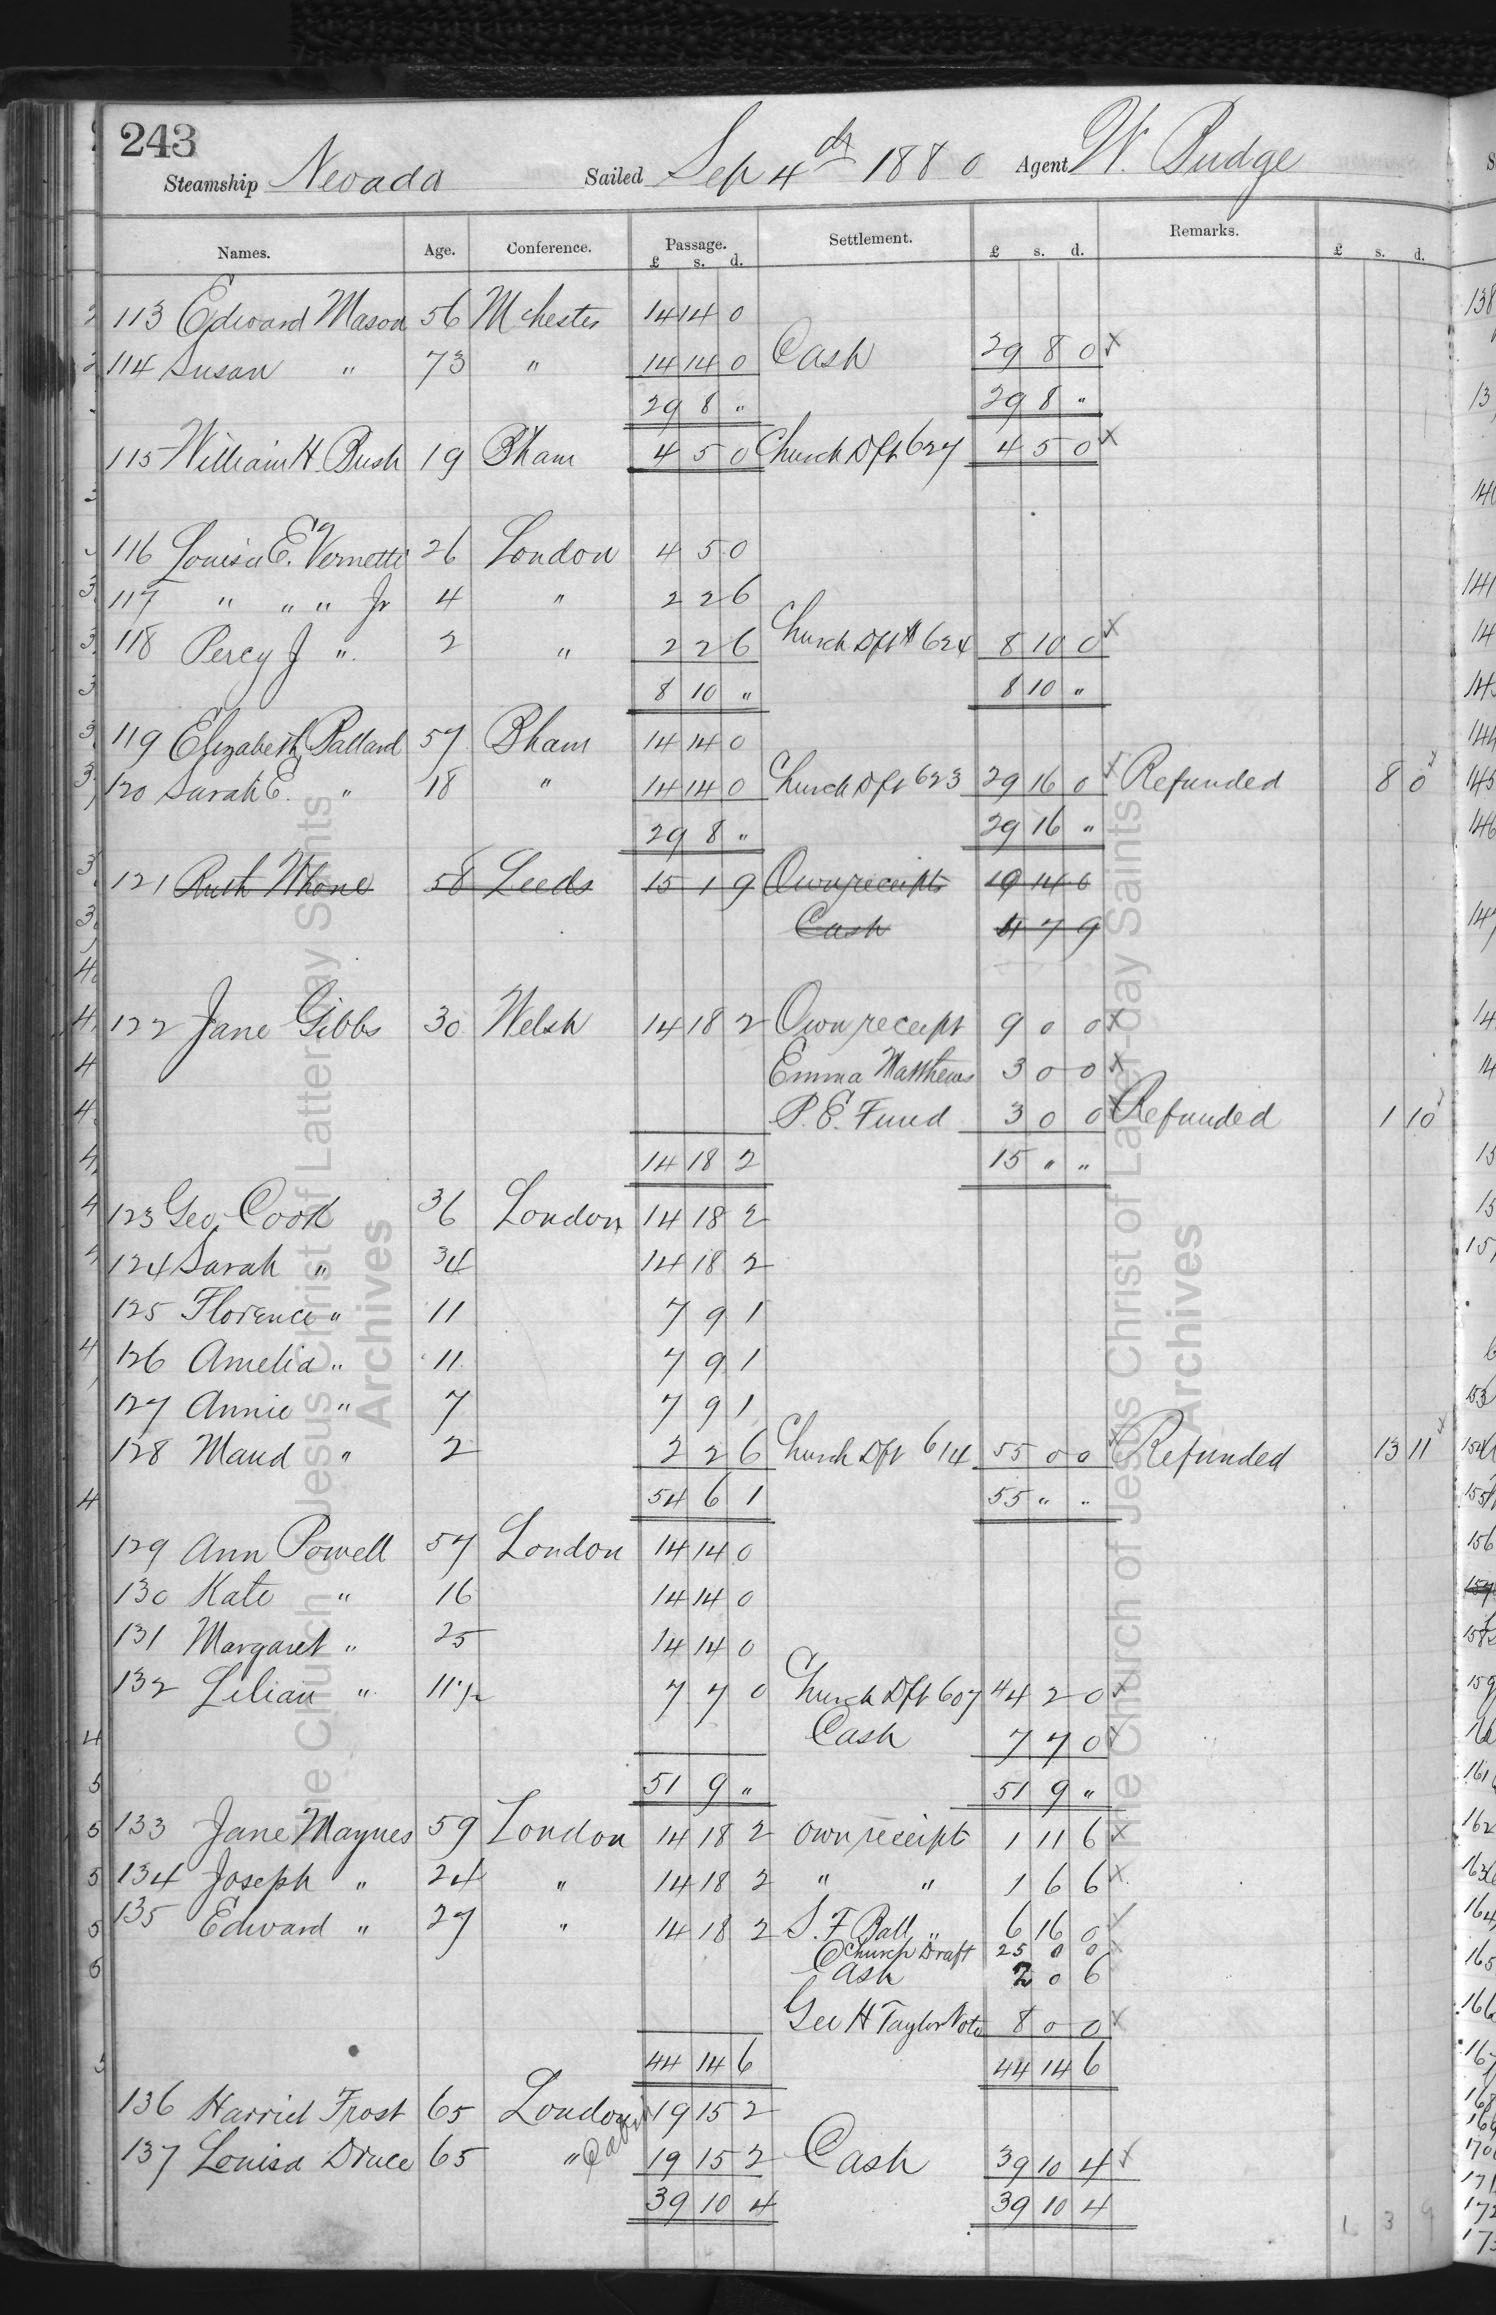 243
Steamship Nevada Sailed Sep 4th 1880 Agent W. Budge
Names. Age. Conference. Passage. Settlement. Remarks.
£ s. d. £ s. d. £ s. d.
113 Edward Mason 56 Mchester 14 14 0
114 Susan " 73 " 14 14 0 Cash 29 8 0 x
29 8 " 29 8 "
115 William H. Bush 19 Bham 4 5 0 Church Dft 627 4 5 0 x
116 Louisa E. Vernette 26 London 4 5 0
117 " " " Jr 4 " 2 2 6
118 Percy J " 2 " 2 2 6 Church Dft # 624 8 10 0 x
8 10 " 8 10 "
119 Elizabeth Pallard 57 Bham 14 14 0
120 Sarah E. " 18 " 14 14 0 Church Dft 623 29 16 0 x Refunded 8 0
29 8 " 29 16 "
121 Ruth Whone 58 Leeds 15 1 9 Own receipts
Cash 4 7 9
122 Jane Gibbs 30 Welsh 14 18 2 Own receipt 9 0 0 x
Emma Matthews 3 0 0 x
P. E. Fund 3 0 0 x Refunded 1 10
14 18 2 15 " "
123 Geo. Cook 36 London 14 18 2
124 Sarah " 34 14 18 2
125 Florence " 11 7 9 1
126 Amelia " 11 7 9 1
127 Annie " 7 7 9 1
128 Maud " 2 2 2 6 Church Dft 614 55 0 0 x Refunded 13 11
54 6 1 55 " "
129 Ann Powell 57 London 14 14 0
130 Kate " 16 14 14 0
131 Margaret " 25 14 14 0
132 Lilian " 11 1/2 7 7 0 Church Dft 607 44 2 0 x
Cash 7 7 0 x
51 9 " 51 9 "
133 Jane Maynes 59 London 14 18 2 own receipt 1 11 6 x
134 Joseph " 24 " 14 18 2 " " 1 6 6 x
135 Edward " 27 " 14 18 2 S. F Ball " 6 16 0 x
Church Draft 25 0 0 x
Cash 2 0 6
Geo H Taylor Note 8 0 0 x
44 14 6 44 14 6
136 Harriet Frost 65 London 19 15 2
Cabin
137 Louisa Druce 65 " 19 15 2 Cash 39 10 4 x
39 10 4 39 10 4
1 3 9
The Church of Jesus Christ of Latter-day Saints
Archives
The Church of Jesus Christ of Latter-day Saints
Archives